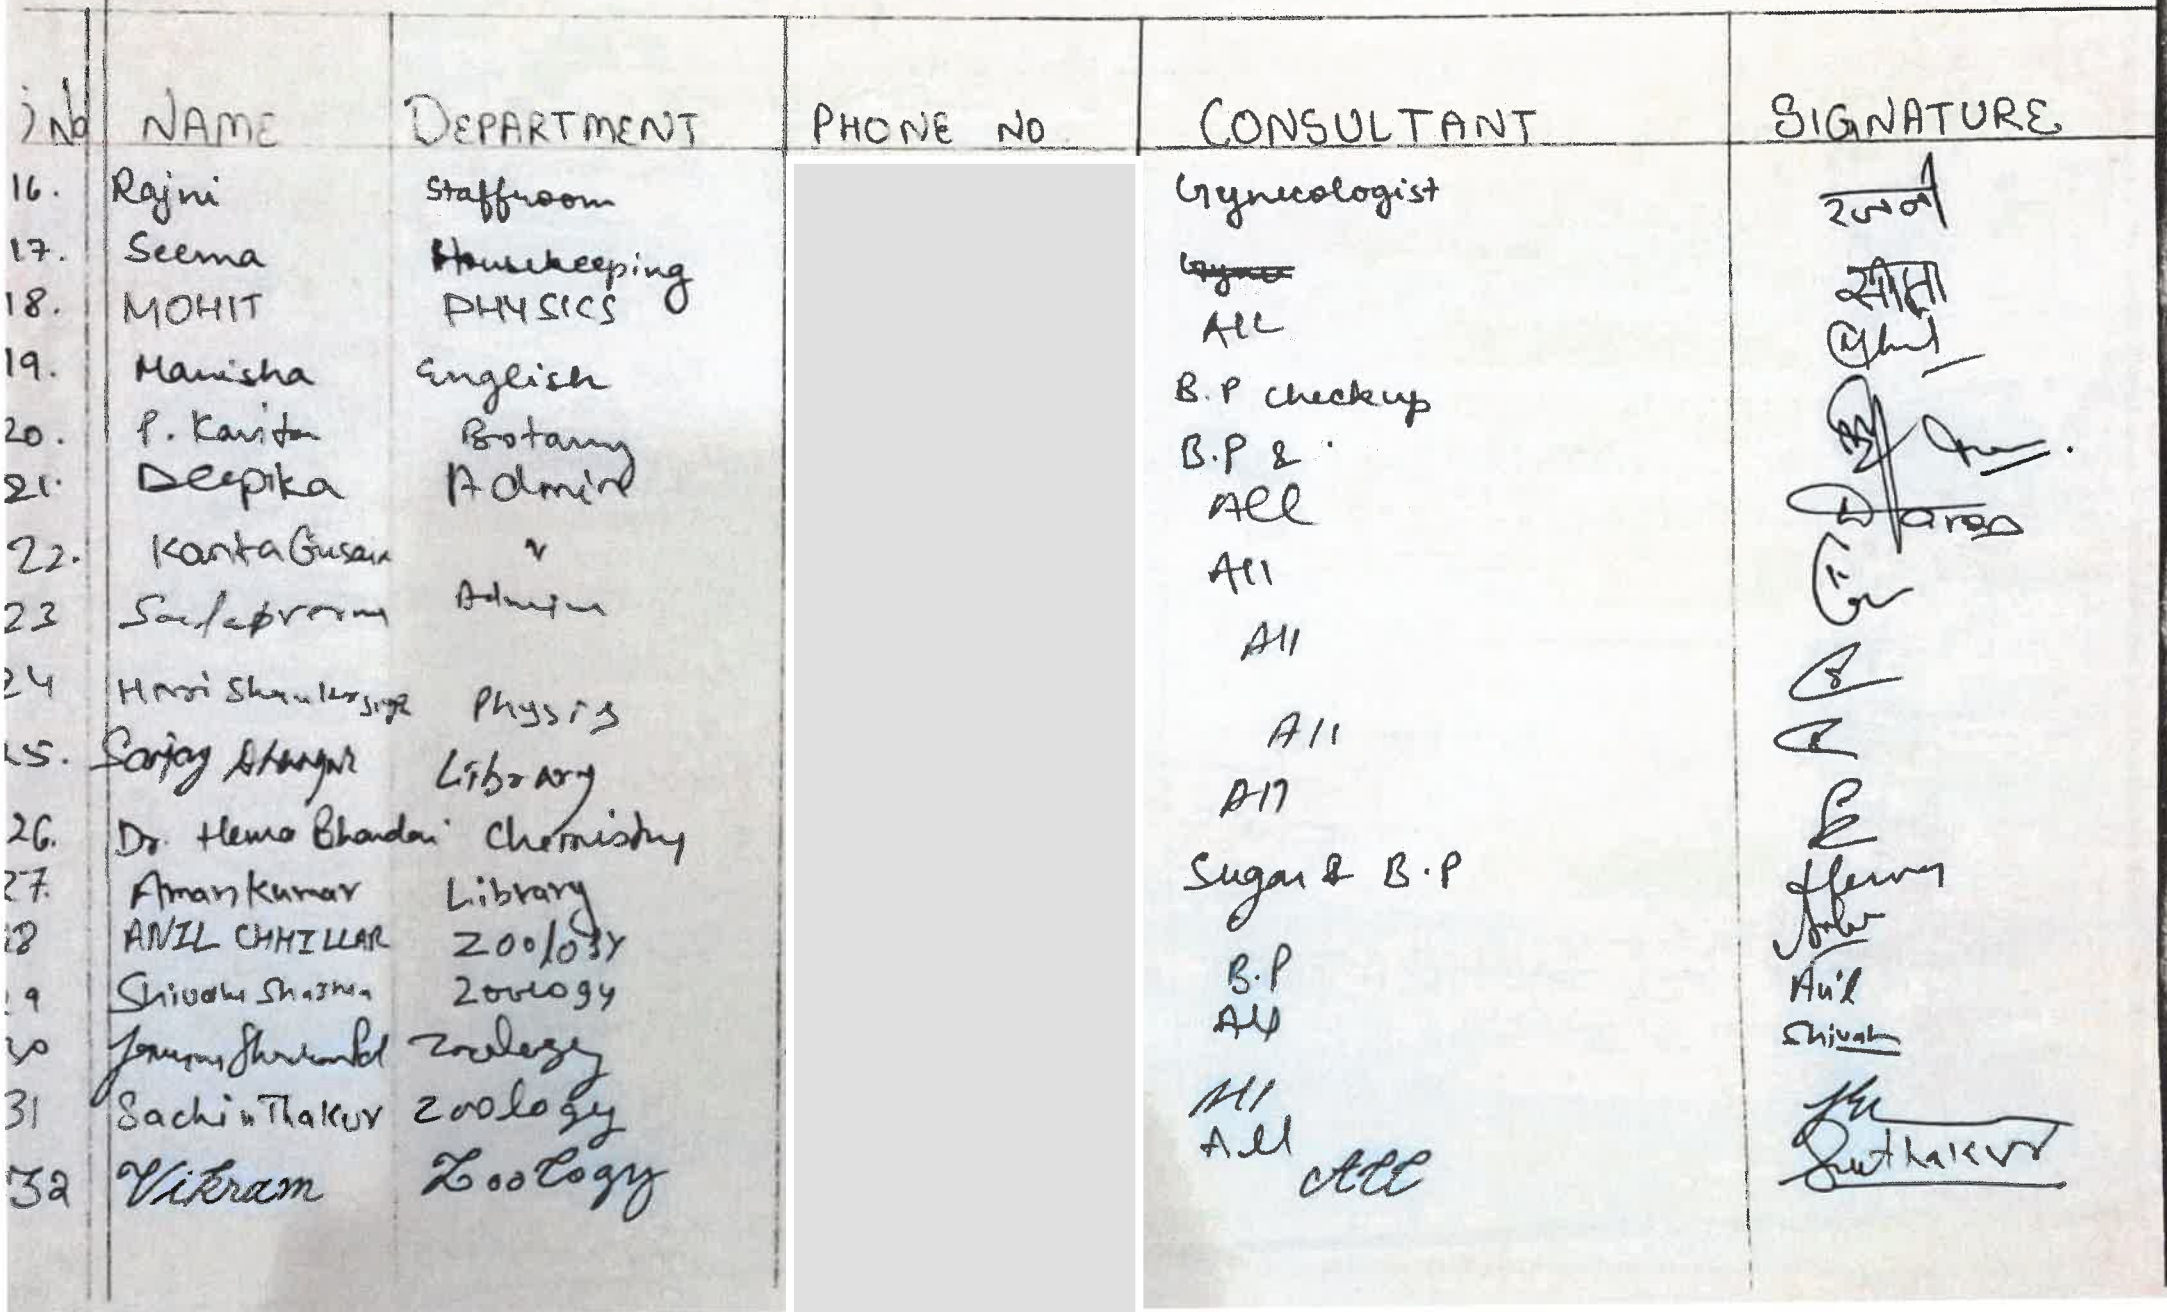 NAME DEPARTMENT PHONE NO. CONSULTANT SIGNATURE
16. Rajni Staffroom Gynecologist रजनी
17. Seema Housekeeping सीमा
18. MOHIT PHYSICS All
19. Manisha English B.P checkup
20. P. Kavita Botany B.P &
21. Deepika Admin All
22. Kanta Gusain " All
23 Admin All
24 Hari Shanker Physis All
Sanjay Library All
26. Dr. Hema Bhandari Chemistry Sugar & B.P
27. Aman Kumar Library B.P
ANIL CHHILLAR Zoology All Anil
Shivam Sharma Zoology All Shivam
Zoology All
31 Sachin Thakur Zoology All
32 Vikram Zoology